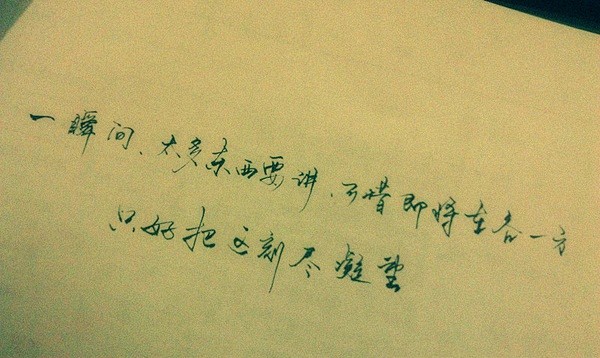 一瞬间、太多东西要讲、可惜即将在各一方
只好把这刻尽凝望